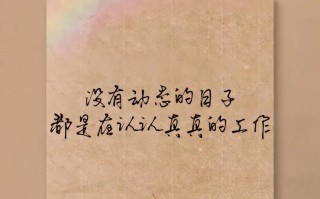 没有动态的日子
都是在认认真真的工作